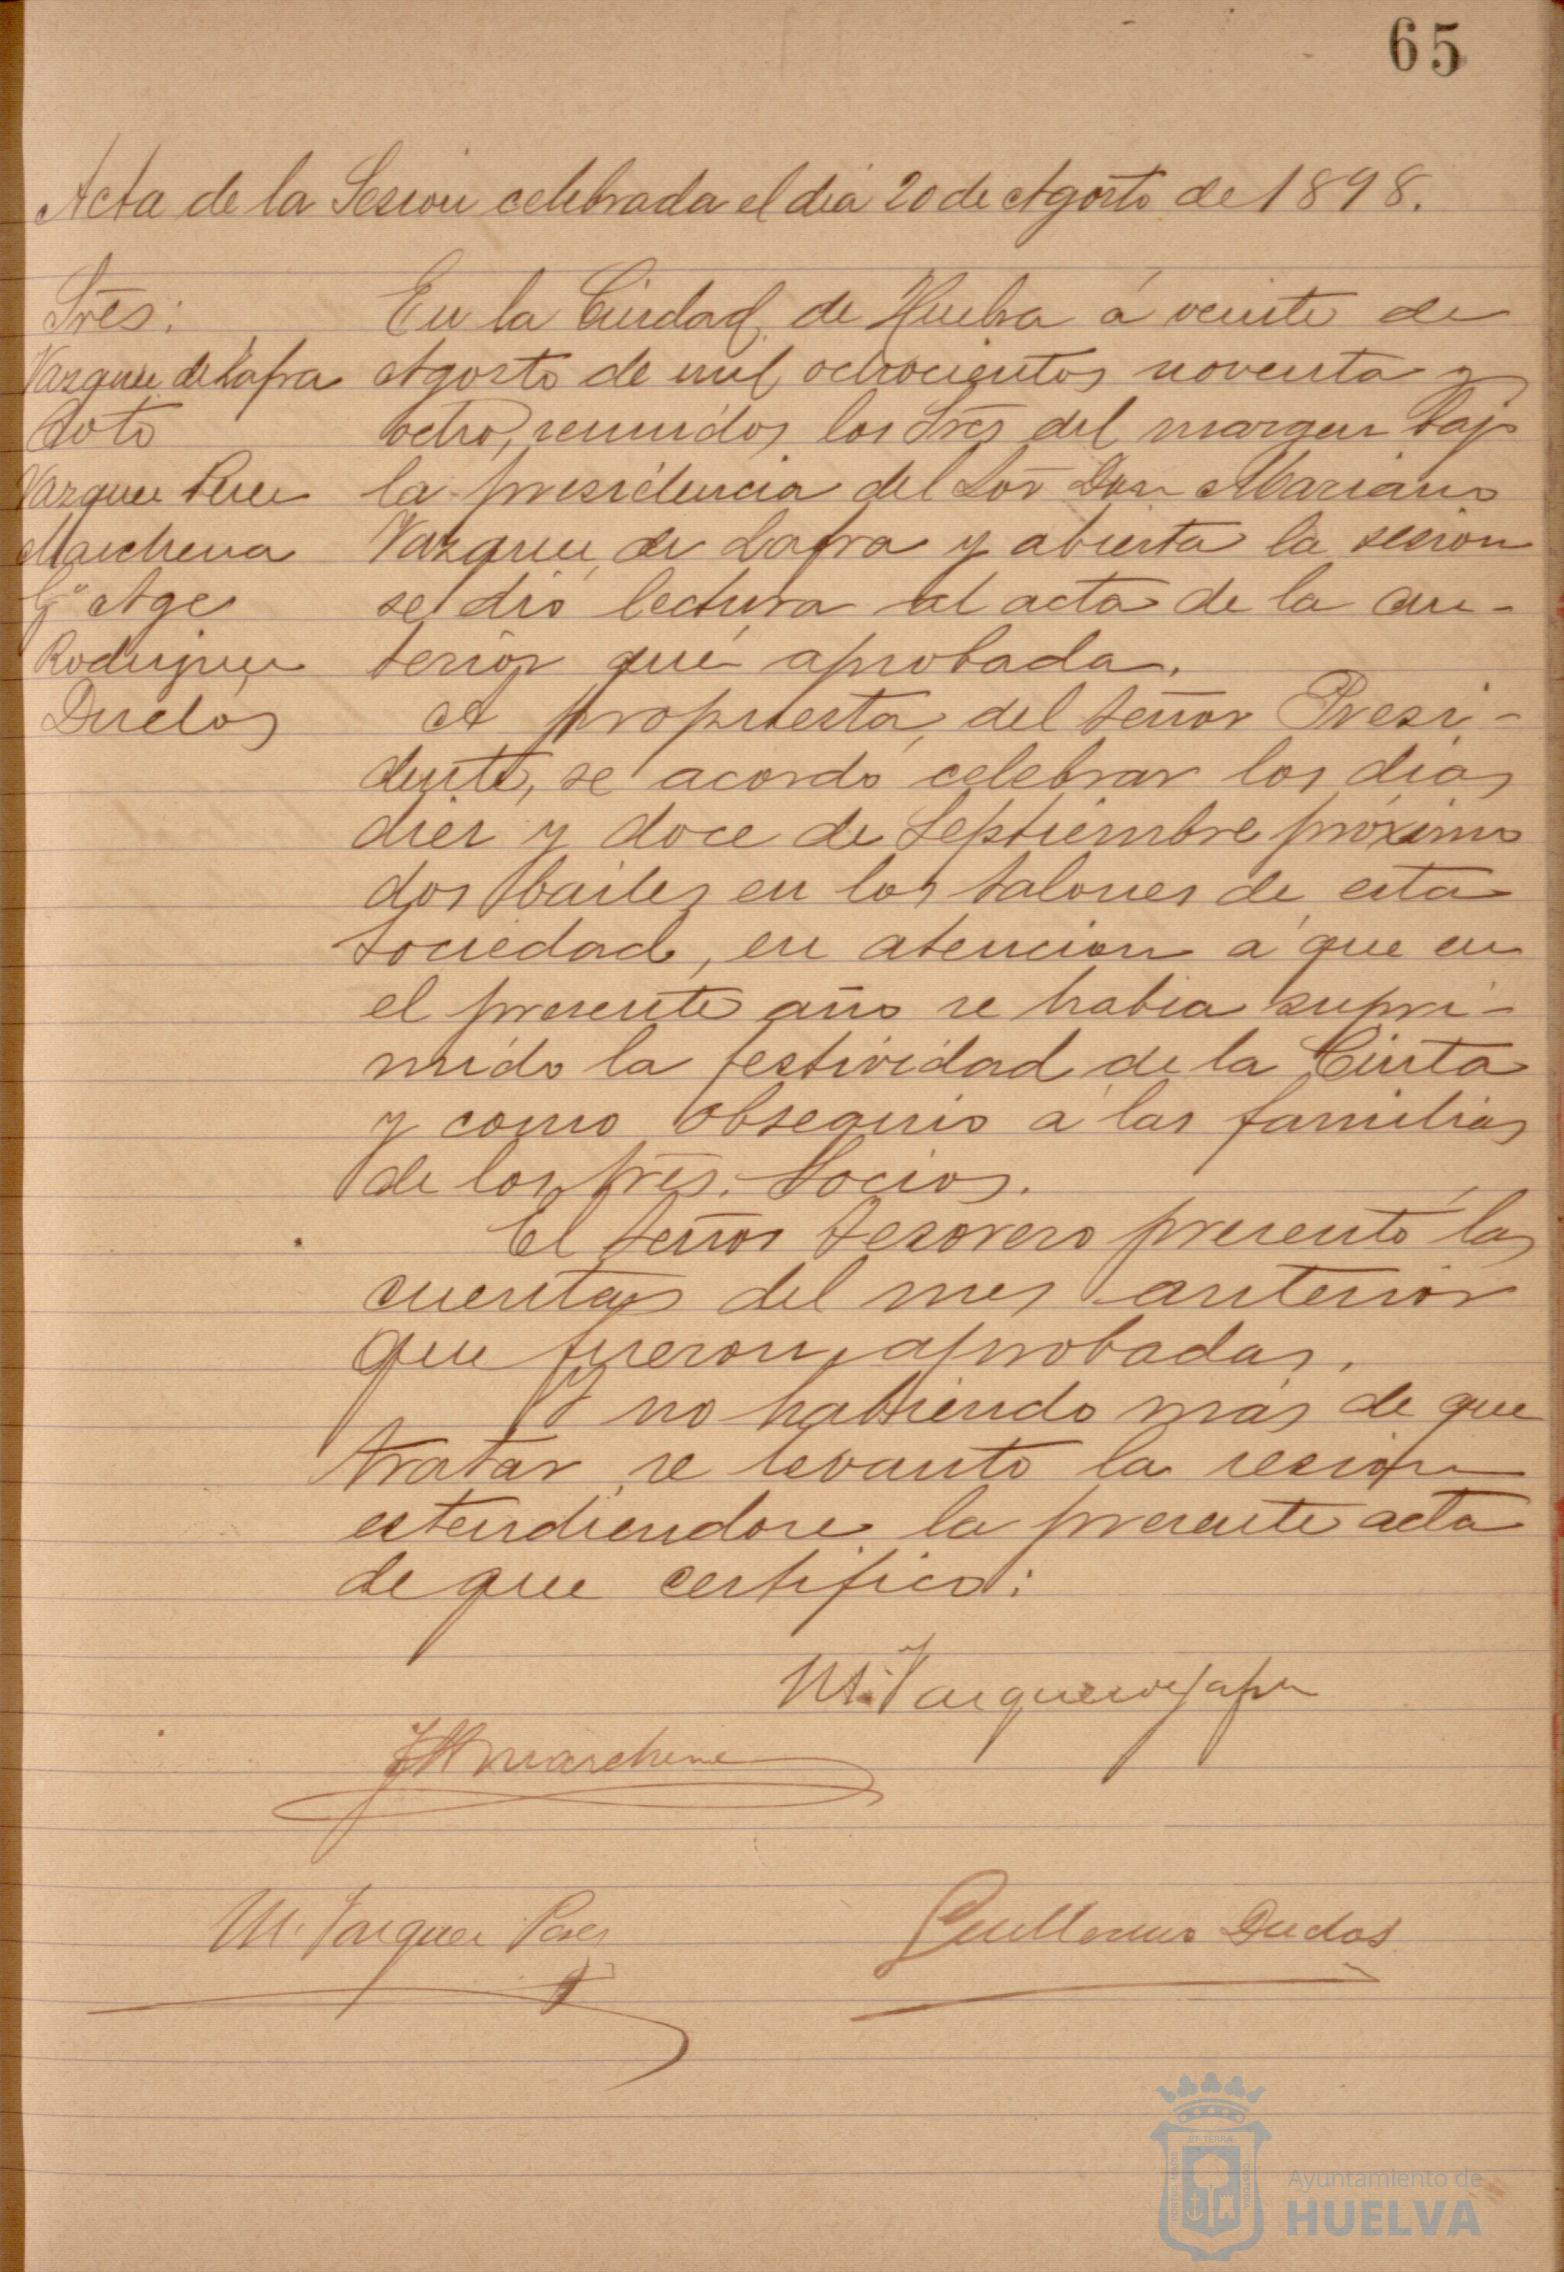 65
Acta de la Sesion celebrada el dia 20 de Agosto de 1898.
Sres:
Vazquez de Zafra
Soto
Vazquez Perez
Marchena
Gª Age
Rodriguez
Duclós
En la Ciudad de Huelva á veinte de
Agosto de mil ochocientos noventa y
ocho, reunidos los Sres del margen bajo
la presidencia del Sor Don Mariano
Vazquez de Zafra y abierta la sesion
se dió lectura al acta de la an-
terior que aprobada.
A propuesta del Señor Presi-
dente, se acordó celebrar los dias
diez y doce de Septiembre próximo
dos bailes en los salones de esta
Sociedad, en atencion á que en
el presente año se habia supri-
mido la festividad de la Cinta
y como obsequio á las familias
de los Sres. Socios.
El Señor Tesorero presentó las
cuentas del mes anterior
que fueron aprobadas.
Y no habiendo más de que
tratar se levantó la sesion
estendiendose la presente acta
de que certifico:
M. Vazquez de Zafra
Marchena
M. Vazquez Perez
Guillermo Duclós
Ayuntamiento de
HUELVA